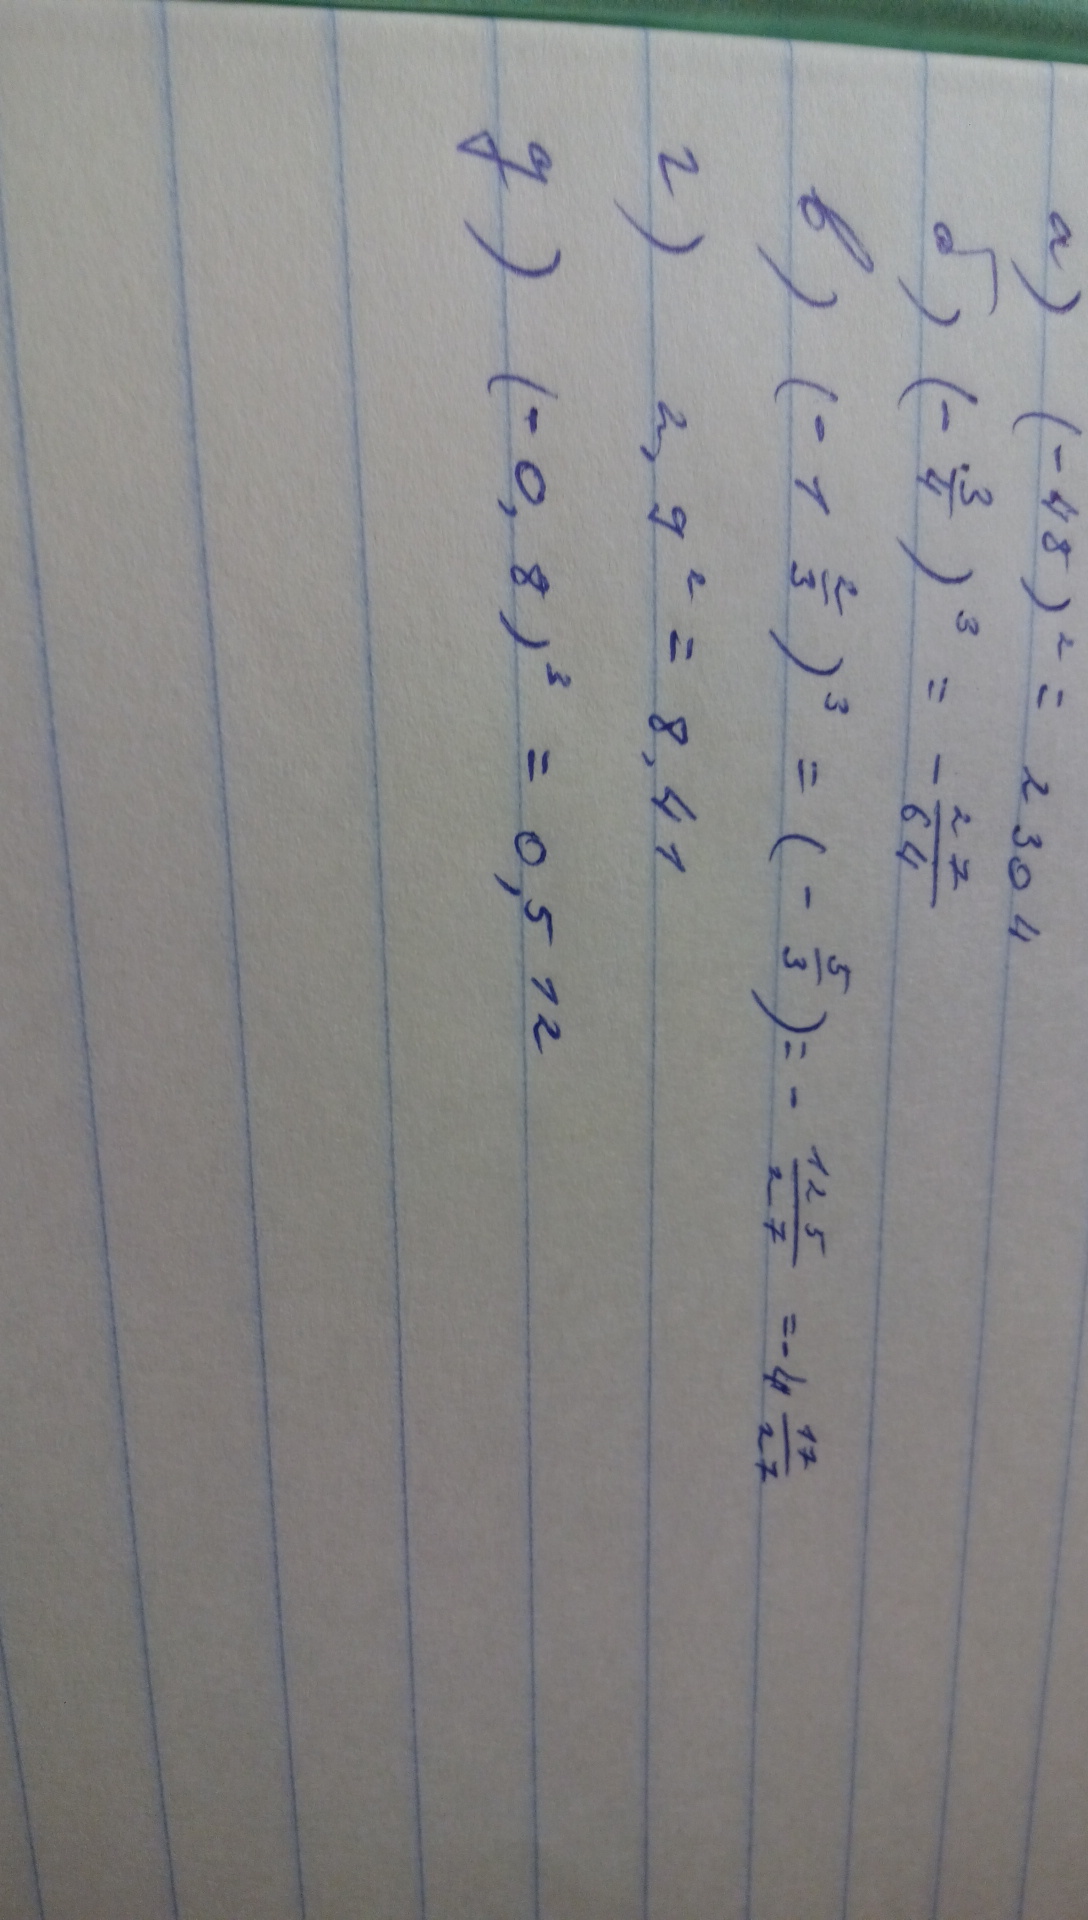 а) (-48)² = 2304
б) (-3/4)³ = -27/64
в) (-1 2/3)³ = (-5/3) = -125/27 = -4 17/27
г) 2,9² = 8,41
д) (-0,8)³ = 0,512